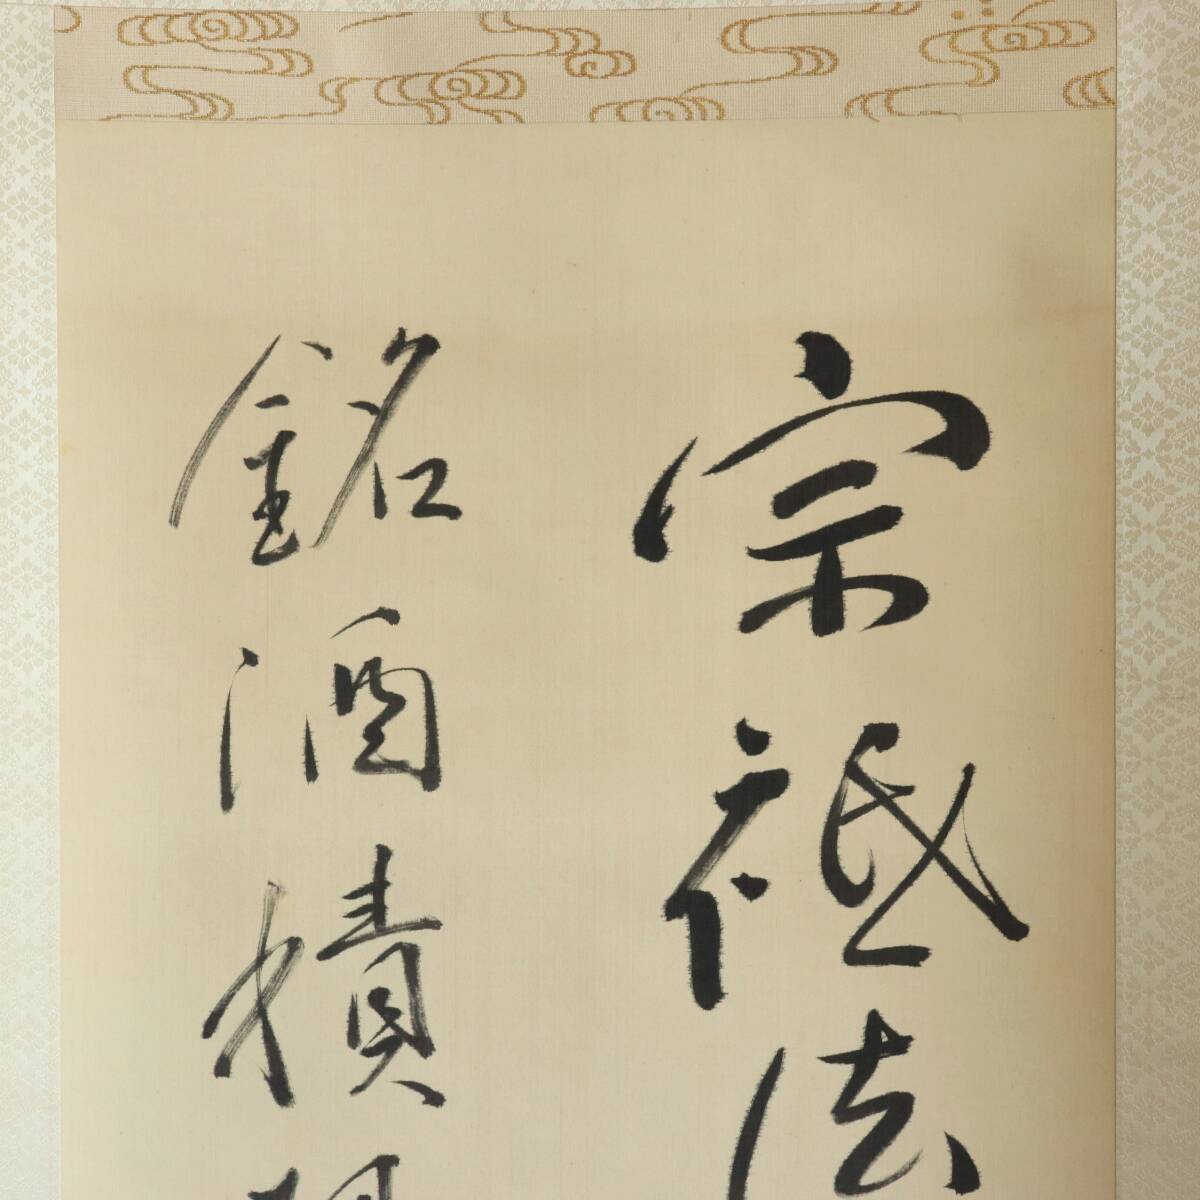 宗祗法
銘酒積